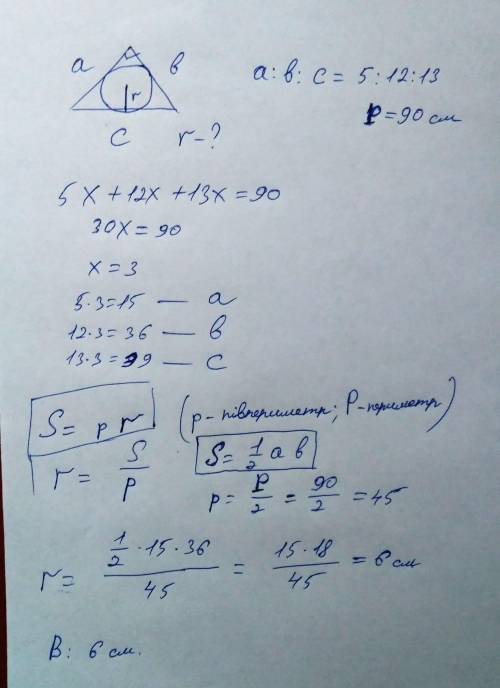 a в a:в:c = 5:12:13
r P=90 см
c r-?
5x+12x+13x=90
30x=90
x=3
5·3=15 — a
12·3=36 — в
13·3=39 — c
S= pr (p-півпериметр; P-периметр)
r= S/p S= 1/2 a в
p= P/2 = 90/2 =45
r= (1/2 ·15·36)/45 = (15·18)/45 =6 см
В: 6 см.